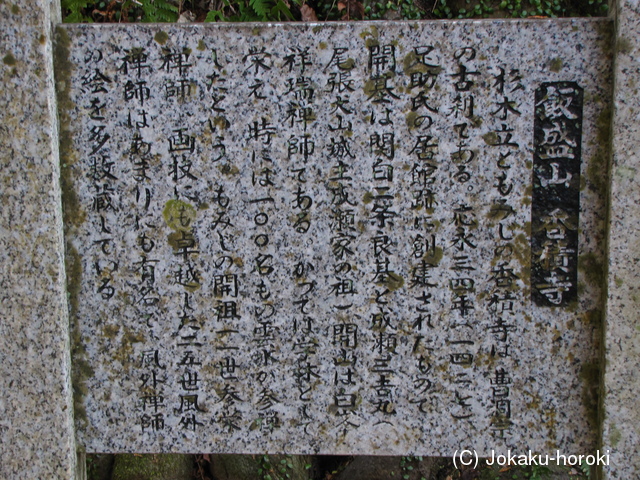 飯盛山 香積寺
杉木立ともみじの香積寺は 曹洞宗
の古刹である。応永三四年(一四二七)
足助氏の居館跡に創建されたもので
開基は関白二条良基と成瀬三吉丸(
尾張犬山城主成瀬家の祖)開山は白峯
祥瑞禅師である かつては学林として
栄え 時には一〇〇名もの雲水が参禅
したという。もみじの開祖一一世参栄
禅師 画技にも卓越した二五世風外
禅師はあまりにも有名で 風外禅師
の絵を多数蔵している
(C) Jokaku-horoki